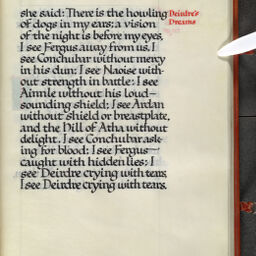 she said: There is the howling
Deirdre's
Dreams
of dogs in my ears; a vision
of the night is before my eyes,
I see Fergus away from us, I
see Conchubar without mercy
in his dun; I see Naoise with-
out strength in battle; I see
Ainnle without his loud-
sounding shield; I see Ardan
without shield or breastplate,
and the Hill of Atha without
delight. I see Conchubar ask-
ing for blood; I see Fergus
caught with hidden lies; I
see Deirdre crying with tears,
I see Deirdre crying with tears.